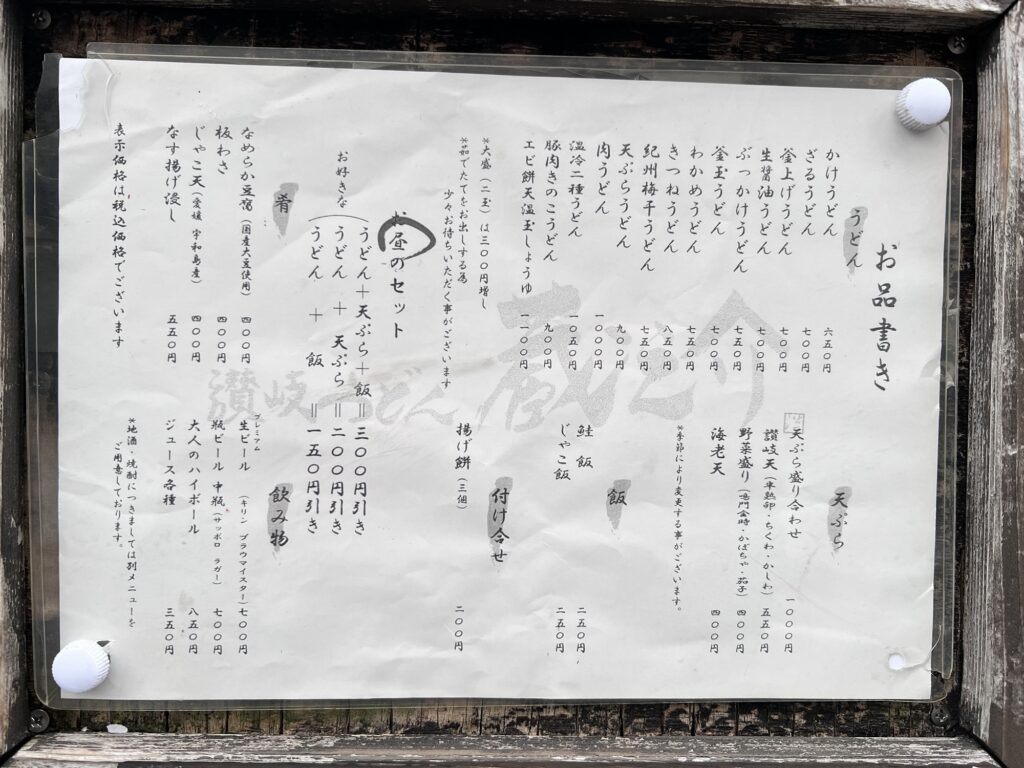 お品書き
うどん
かけうどん 六五〇円
ざるうどん 七〇〇円
釜上げうどん 七〇〇円
生醤油うどん 七〇〇円
ぶっかけうどん 七五〇円
釜玉うどん 七〇〇円
わかめうどん 七五〇円
きつねうどん 八五〇円
紀州梅干うどん 七五〇円
天ぷらうどん 九〇〇円
肉うどん 一〇〇〇円
温冷二種うどん 一〇五〇円
豚肉きのこうどん 九〇〇円
エビ餅天温玉しょうゆ 一一〇〇円
*大盛(二玉)は三〇〇円増し
*茹でたてをお出しする為
少々お待ちいただく事がございます
天ぷら
天ぷら盛り合わせ 一〇〇〇円
讃岐天(半熟卵・ちくわ・かしわ) 五五〇円
野菜盛り(鳴門金時・かぼちゃ・茄子) 四〇〇円
海老天 四〇〇円
*季節により変更する事がございます。
飯
鮭飯 二五〇円
じゃこ飯 二五〇円
付け合せ
揚げ餅(三個) 二〇〇円
お昼のセット
お好きな
うどん+天ぷら+飯=三〇〇円引き
うどん+天ぷら=二〇〇円引き
うどん+飯=一五〇円引き
肴
なめらか豆腐(国産大豆使用) 四〇〇円
板わさ 四〇〇円
じゃこ天(愛媛 宇和島産) 四〇〇円
なす揚げ浸し 五五〇円
表示価格は税込価格でございます
飲み物
プレミアム
生ビール(キリン ブラウマイスター) 七〇〇円
瓶ビール 中瓶(サッポロ ラガー) 七〇〇円
大人のハイボール 八五〇円
ジュース各種 三五〇円
*地酒・焼酎につきましては別メニューを
ご用意しております。
讃岐うどん 蔵之介